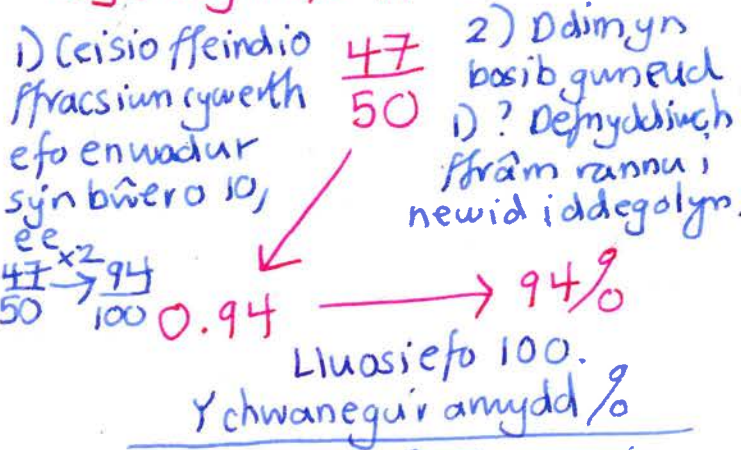 1) Ceisio ffeindio
ffracsiwn cywerth
efo enwadur
sy'n bŵer o 10,
ee
47/50 ×2→ 94/100
47/50
2) Ddim yn
bosib gwneud
1)? Defnyddiwch
ffrâm rannu i
newid i ddegolyn.
0.94 → 94%
Lluosi efo 100.
Ychwanegu'r arwydd %